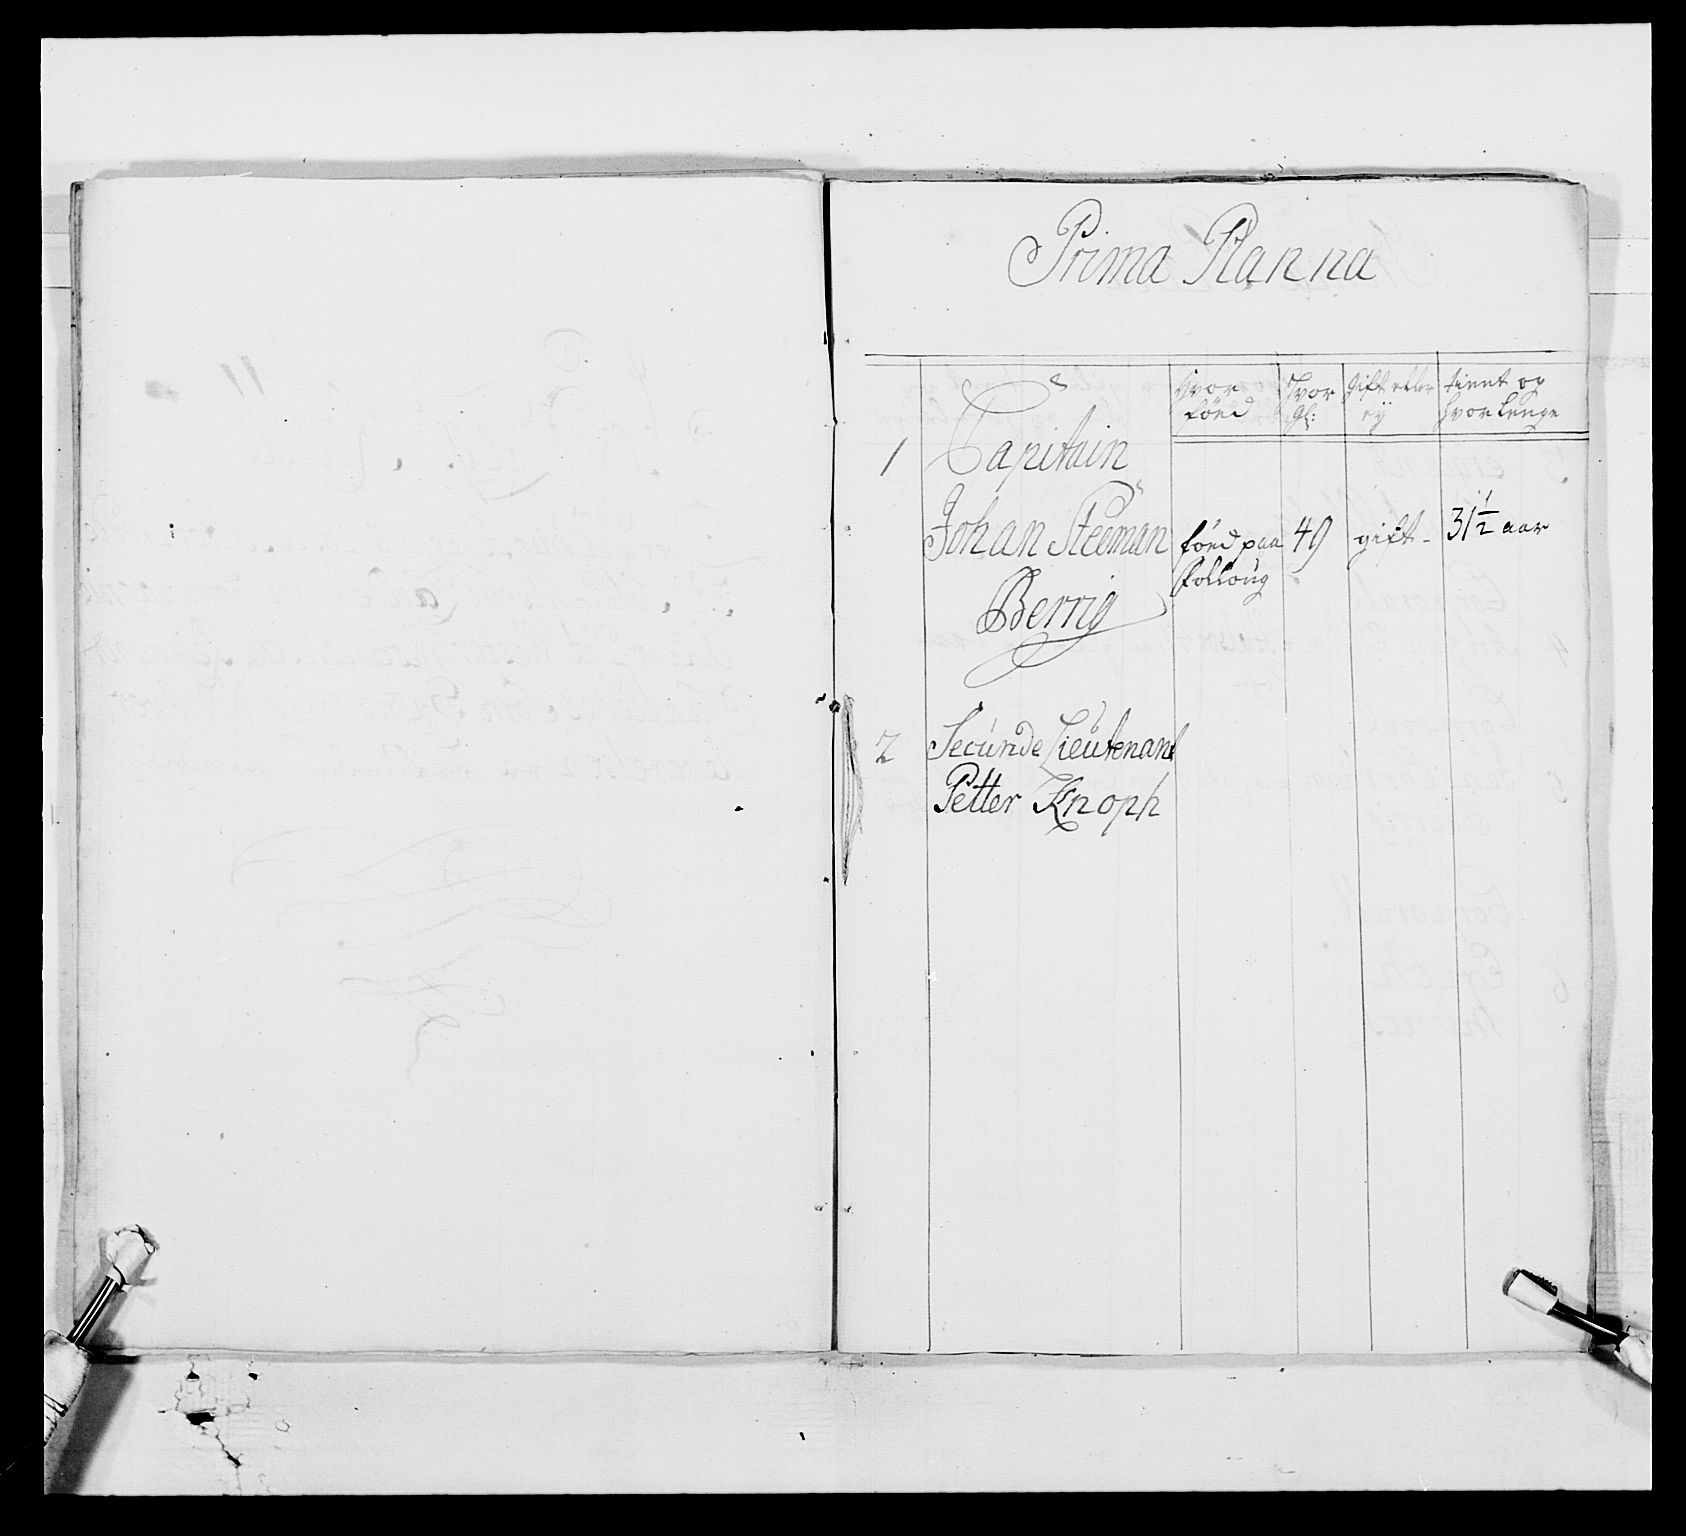 Prima Planna
Hvor föed
Hvor gl:
gift eller ey
tient og hvor lenge
1 Capitain
Johan Steeman föed paa 49 gift - 31 1/2 aar
Berrig folloug
2 Secunde Lieutenant
Petter Knoph